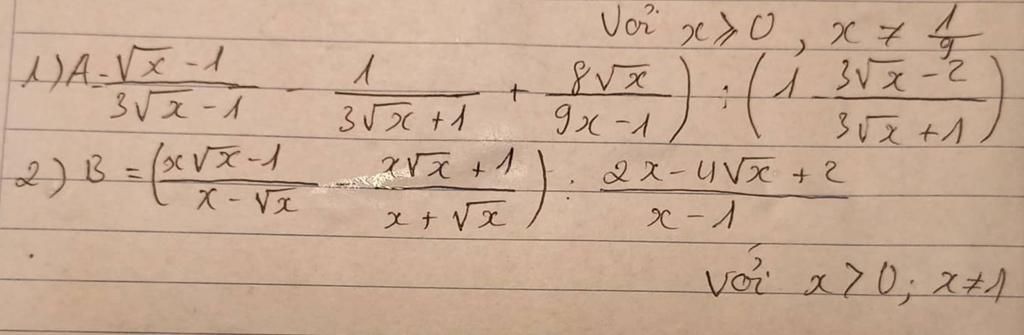 Với x ⩾ 0 , x ≠ 1/9
1) A = (√x - 1)/(3√x - 1) - 1/(3√x + 1) + (8√x)/(9x - 1)) : (1 - (3√x - 2)/(3√x + 1))
2) B = ((x√x - 1)/(x - √x) - (x√x + 1)/(x + √x)) : (2x - 4√x + 2)/(x - 1)
Với x > 0; x ≠ 1